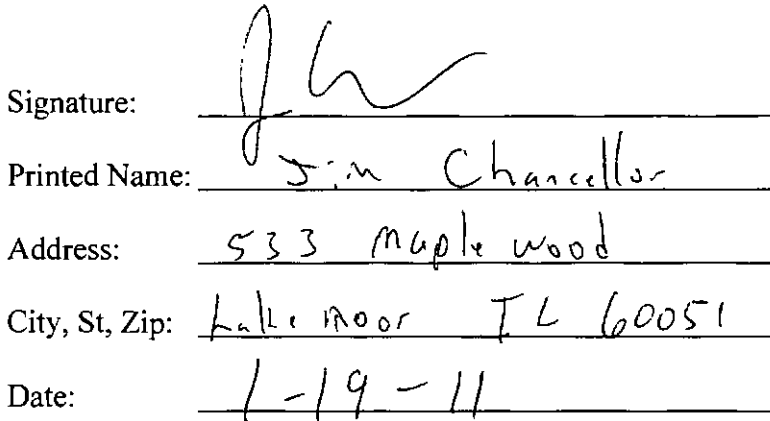 Signature:
Printed Name: Jim Chancellor
Address: 533 maple wood
City, St, Zip: Lake moor IL 60051
Date: 1-19-11